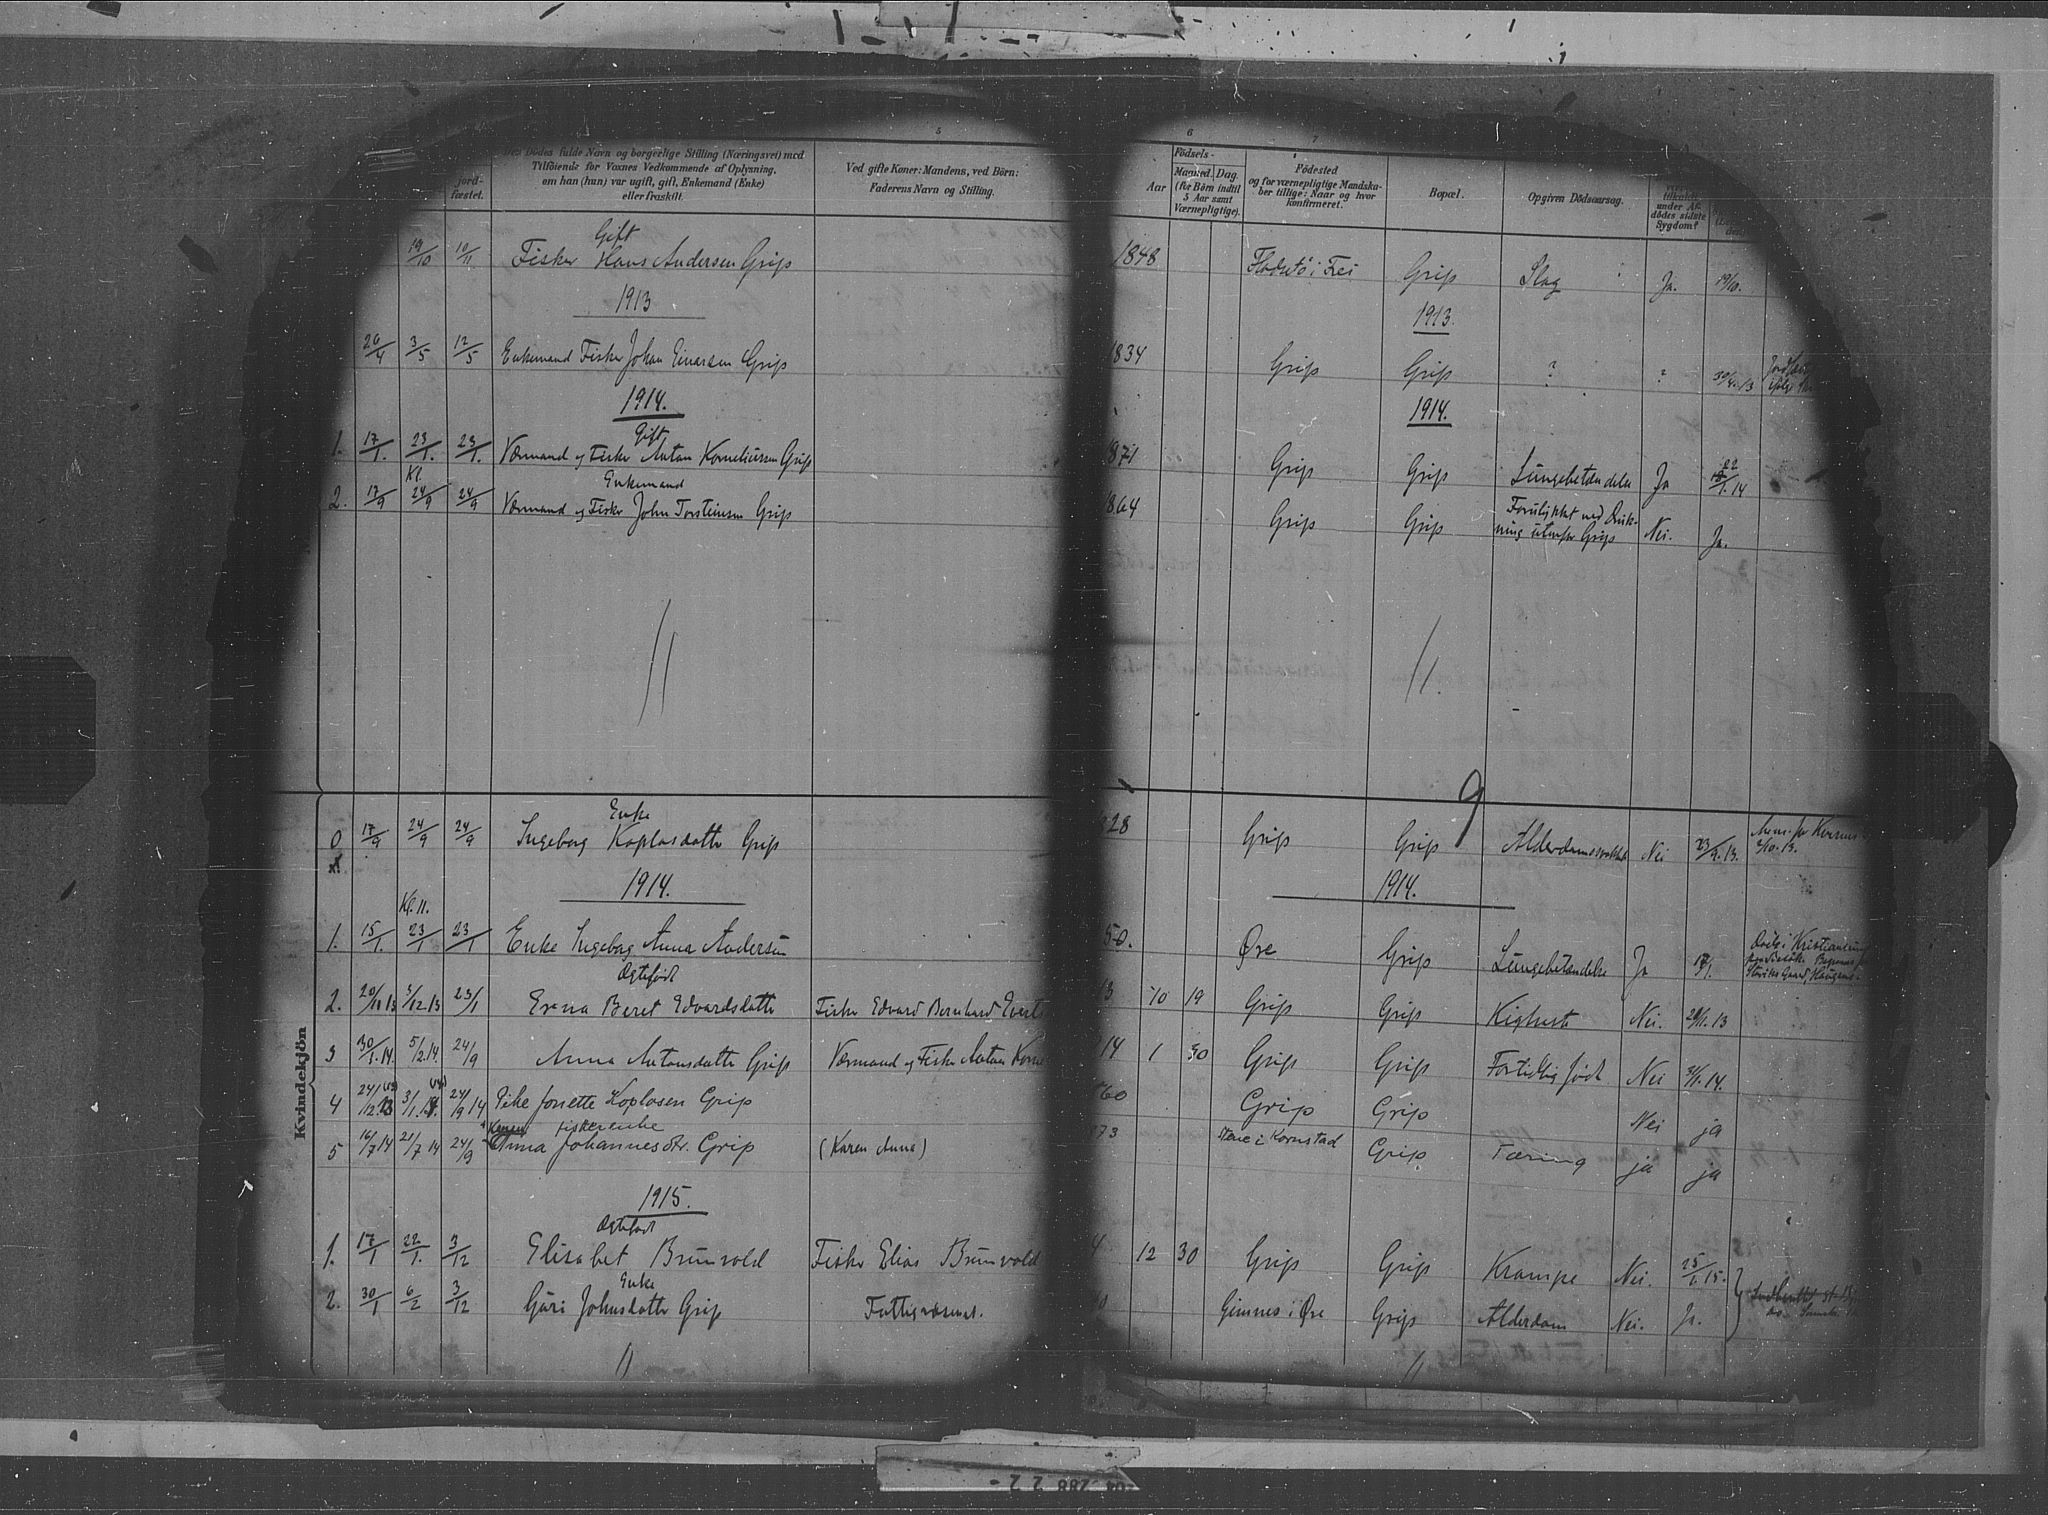 5 6 7
Dødes fulde Navn og borgerlige Stilling (Næringsvei) med
Tilföiende for Voxnes Vedkommende af Oplysning,
om han (hun) var ugift, gift, Enkemand (Enke)
eller fraskilt.
jord-
fæstet.
Ved gifte Koner: Mandens, ved Börn:
Faderens Navn og Stilling.
Födsels-
Aar Maaned. Dag.
(for Börn indtil
5 Aar samt
Værnepligtige).
Födested
og for værnepligtige Mandska-
ber tillige: Naar og hvor
konfirmeret.
Bopæl.
Opgiven Dödsaarsag.
under Af-
dödes sidste
Sygdom?
Gift
19/10 10/11 Fisker Hans Andersen Grip 1848 Frei Grip Slag Ja. 19/10.
1913 1913.
20/4 3/5 12/5 Enkemand Fisker Johan Einarsen Grip 1834 Grip Grip ? ? 30/4.13
1914. 1914.
Gift
1. 17/1. 23/1. 23/1. Værmand og Fisker Anton Korneliussen Grip 1871 Grip Grip Lungebetændelse Ja 22/1.14
Kl. Enkemand
2. 17/9 24/9 24/9 Værmand og Fisker John Torsteinsen Grip 1864 Grip Grip Forulykket ved Druk-
ning utenfor Grip Nei. Ja.
9
Enke
0 17/9 24/9 24/9 Ingeborg Koplasdatter Grip 28 Grip Grip Alderdomssvakhet Nei 23/9.13. Anm. for Kvernes
2/10.13.
1914. 1914.
Kl. 11.
1. 15/1. 23/1 23/1 Enke Ingeborg Anna Andersen 50. Øre Grip Lungebetændelse Ja 17/1. Døde i Kristiansund
Ægtefödt
2. 20/11 13 3/12.13 23/1 Erna Beret Edvardsdatter Fisker Edvard Bernhard 13 10 19 Grip Grip Kighoste Nei. 29/11.13
Kvindekjön
3 30/1.14. 5/2.14. 24/9 Anna Antonsdatter Grip Værmand og Fisker Anton 14 1 30 Grip Grip Fortidlig född Nei 31/1.14.
4 24/12.13 3/1.14 24/9 14 Pike Jonette Koplasen Grip 60 Grip Grip Nei ja
Karen fiskerenke
5 16/7 14 21/7 14 24/9 Anna Johannesdtr. Grip (Karen Anna) 73 Stene i Kornstad Grip Tæring ja ja
1915.
Ægtefödt
1. 17/1 22/1. 3/12 Elisabet Brunvold Fisker Elias Brunvold 4 12 30 Grip Grip Krampe Nei. 25/1.15.
Enke
2. 30/1 6/2 3/12 Guri Johnsdatter Grip Fattigvæsenet. Gimnes i Øre Grip Alderdom Nei. Ja.